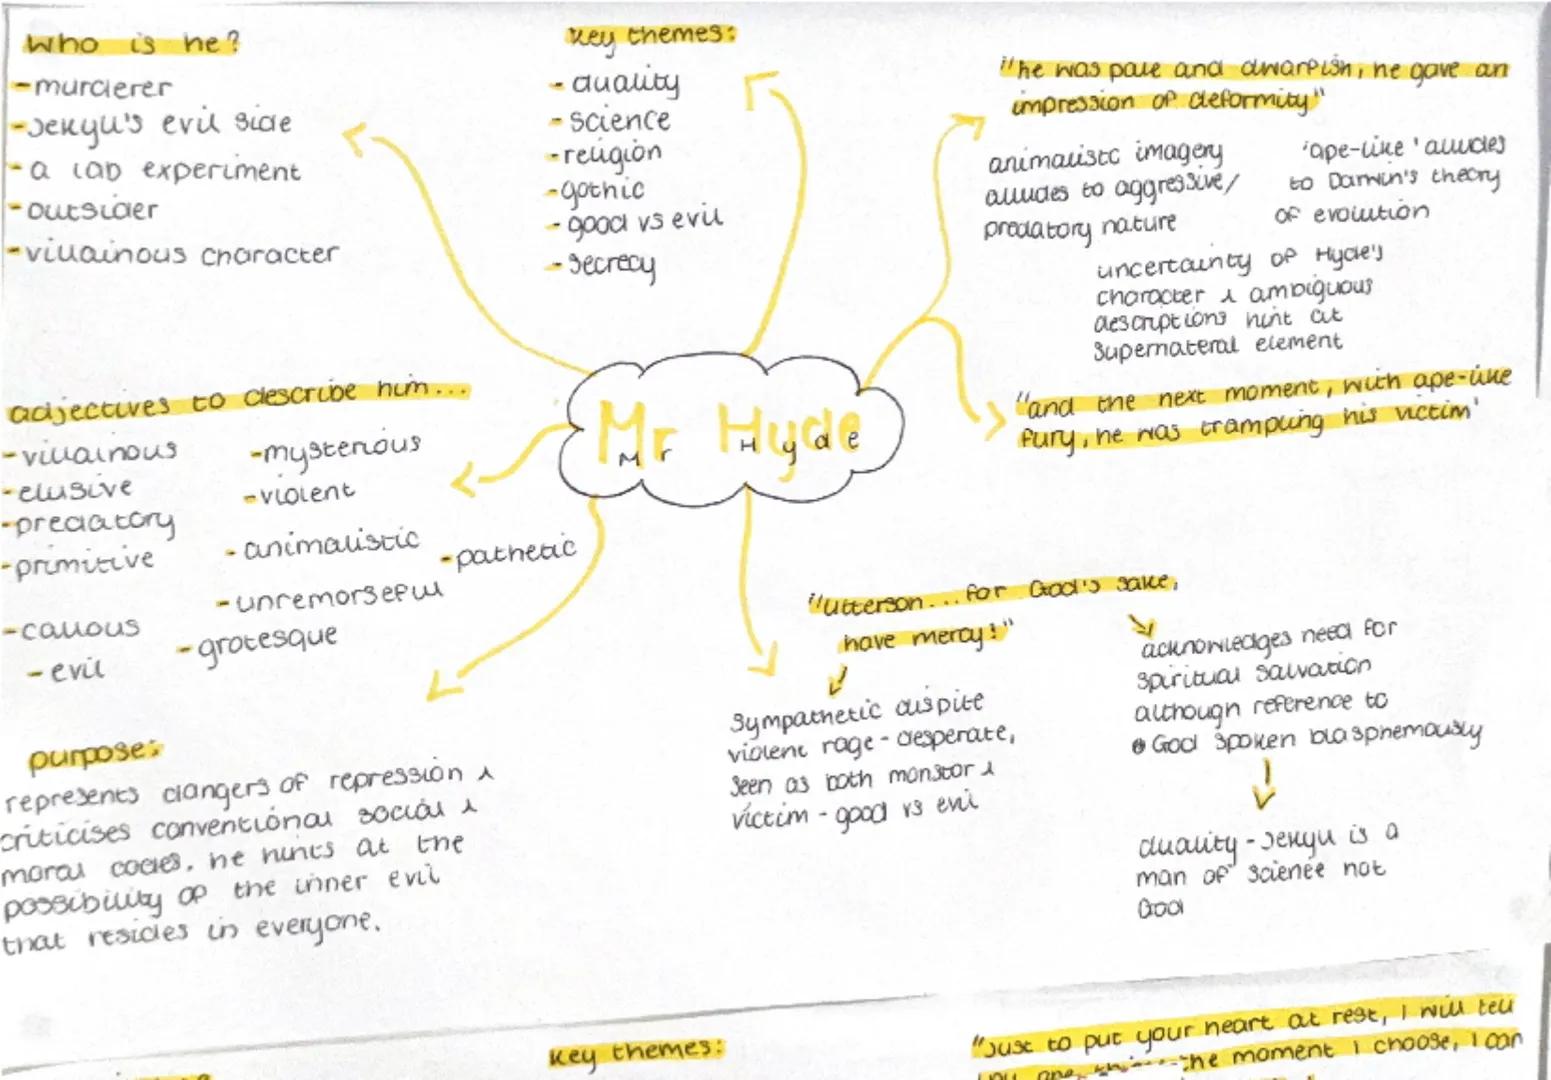 Who is he?
-murderer
-Jekyll's evil side
-a lab experiment
-outsider
-villainous character
key themes:
- duality
- science
-religion
-gothic
- good vs evil
- secrecy
"he was pale and dwarfish, he gave an
impression of deformity"
animalistc imagery
alludes to aggressive/
predatory nature
'ape-like' alludes
to Darwin's theory
of evolution
uncertainty of Hyde's
character & ambiguous
descriptions hint at
supernateral element
"and the next moment, with ape-like
fury, he was trampling his victim'
adjectives to describe him...
-villainous
-elusive
-predatory
-primitive
-callous
- evil
-mysterious
-violent
- animalistic
- unremorseful
- grotesque
-pathetic
Mr Hyde
Mr Hyde
"Utterson... for God's sake,
have mercy!"
sympathetic dispite
violent rage - desperate,
seen as both monstor &
victim - good vs evil
acknowledges need for
spiritual salvation
although reference to
God spoken blasphemously
duality - Jekyll is a
man of science not
God
purpose:
represents dangers of repression &
criticises conventional social &
moral codes. he hints at the
possibility of the inner evil
that resides in everyone.
key themes:
"Just to put your heart at rest, I will tell
the moment I choose, I can